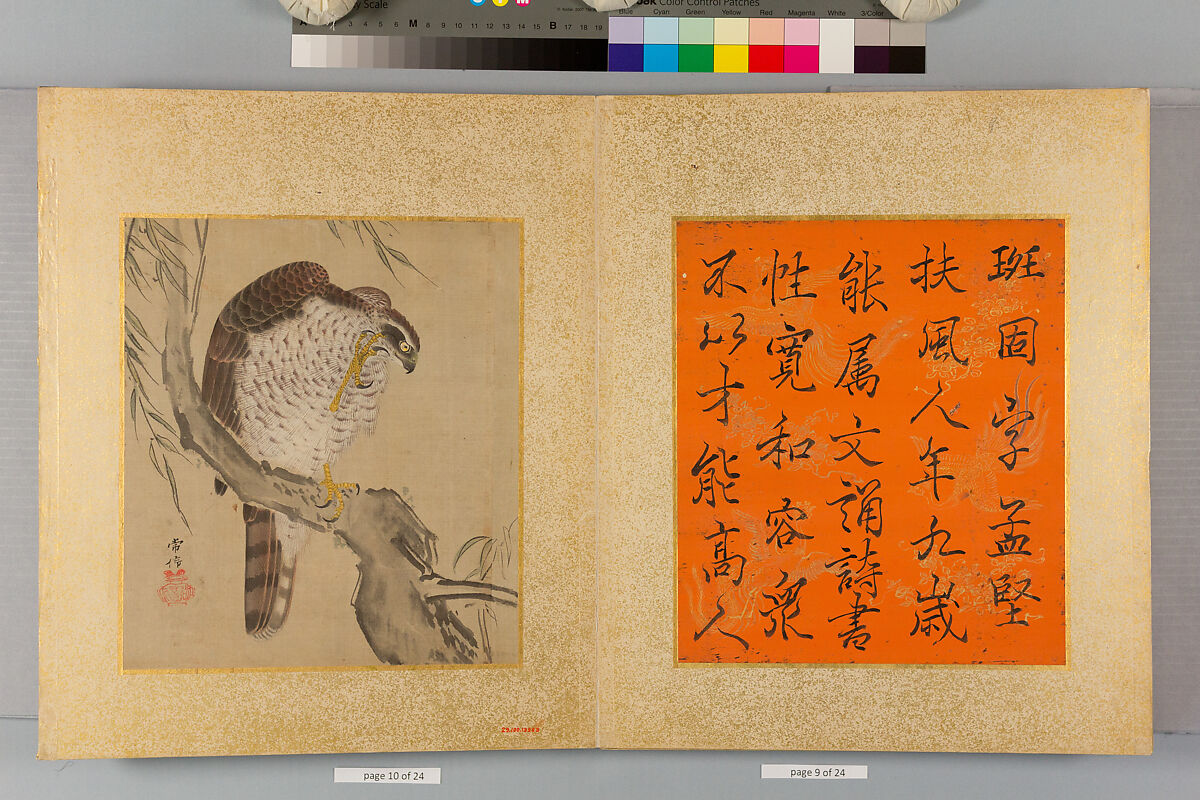 班固字孟堅
扶風人年九歳
能属文誦詩書
性寛和容衆
不以才能高人
常信
page 10 of 24
page 9 of 24
Color Control Patches
Blue Cyan Green Yellow Red Magenta White 3/Color
A 1 2 3 4 5 6 M 8 9 10 11 12 13 14 15 B 17 18 19